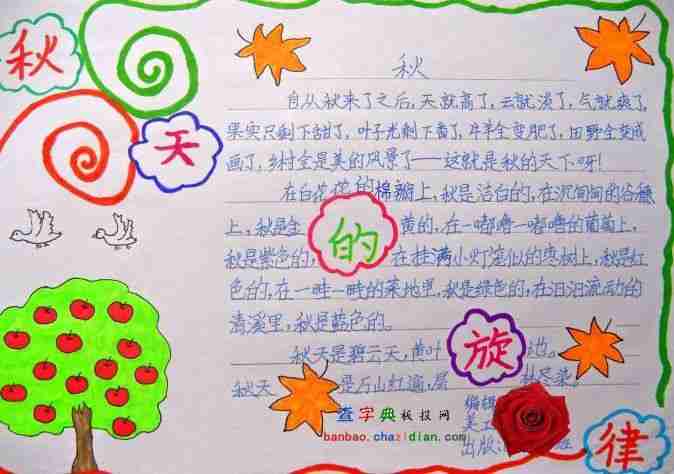 秋
天
的
旋
律
秋
自从秋来了之后,天就高了,云就淡了,气就爽了,
果实只剩下甜了,叶子光剩下香了,牛羊全变肥了,田野全变成
画了,乡村全是美的风景了——这就是秋的天下呀!
在白花花的棉瓣上,秋是洁白的,在沉甸甸的谷穗
上,秋是金 黄的,在一嘟噜一嘟噜的葡萄上,
秋是紫色的; 在挂满小灯笼似的枣树上,秋是红
色的,在一畦一畦的菜地里,秋是绿色的,在汩汩流动的
清溪里,秋是蓝色的。
秋天是碧云天,黄叶 地。
秋天 是万山红遍,层 林尽染。
编辑
美工
出版:
查字典板报网
banbao.chazidian.com